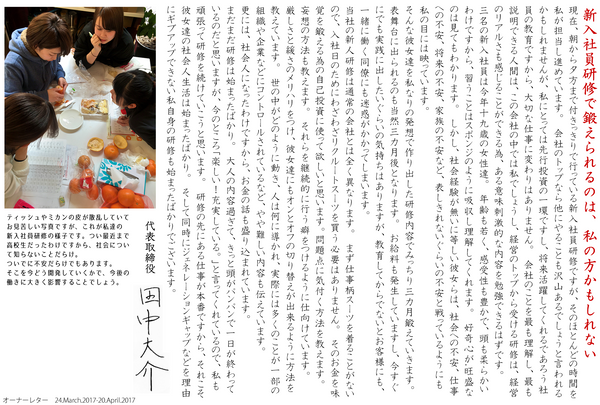 新入社員研修で鍛えられるのは、私の方かもしれない
現在、朝から夕方まで付きっきりで行っている新人社員研修ですが、そのほとんどの時間を
私が担当し進めています。　会社のトップなら他にやることも沢山あるでしょうと言われる
かもしれませんが、私にとっては先行投資の一環ですし、将来活躍してくれるであろう社
員の教育ですから、大切な仕事に変わりはありません。　会社のことを最も理解し、最も
説明できる人間は、この会社の中では私でしょうし、経営のトップから受ける研修は、経営
のリアルさも感じることができる為、ある意味刺激的な内容を勉強できるはずです。
三名の新人社員は今年十九歳の女性達。　年齢も若く、感受性も豊かで、頭も柔らかい
わけですから、習うことはスポンジのように吸収し理解してくれます。　好奇心が旺盛な
のは見てもわかります。　しかし、社会経験が無いに等しい彼女らは、社会への不安、仕事
への不安、将来の不安、家族の不安など、表しきれないくらいの不安と戦っているようにも
私の目には映っています。
そんな彼女達を私なりの発想で作り出した研修内容でみっちり三カ月鍛えていきます。
表舞台に出られるのも当然三カ月後となります。　お給料も発生していますし、今すぐ
にでも実践に出したいぐらいの気持ちはありますが、教育してからでないとお客様にも、
一緒に働く同僚にも迷惑がかかってしまいます。
当社の新人研修は通常の会社とは全く異なります。　まず仕事柄スーツを着ることがない
ので、入社日のためにわざわざリクルートスーツを買う必要はありません。そのお金を味
覚を鍛える為の自己投資に使って欲しいと思います。問題点に気付く方法を教えます。
妄想の方法も教えます。　それらを継続的に行う癖をつけるように仕向けています。
厳しさと緩さのメリハリをつけ、彼女達にもオンとオフの切り替えが出来るように方法を
教えています。　世の中がどのように動き、人は何に導かれ、実際には多くのことが一部の
組織や企業などにコントロールされているなど、やや難しい内容も伝えています。
更には、社会人になったわけですから、お金の話も盛り込まれています。
まだまだ研修は始まったばかり。　大人の内容過ぎて、きっと頭がパンパンで一日が終わって
いるのだと思いますが、今のところ「楽しい！充実している。」と言ってくれているので、私も
頑張って研修を続けていこうと思います。　研修の先にある仕事が本番ですから、それこそ、
彼女達の社会人生活は始まったばかり。　そして同時にジェネレーションギャップなどを理由
にギブアップできない私自身の研修も始まったばかりでございます。
代表取締役
田中大介
ティッシュやミカンの皮が散乱していて
お見苦しい写真ですが、これが私達の
新入社員研修の様子です。つい最近まで
高校生だったわけですから、社会につい
て知らないことだらけ。
ついでに不安だらけでもあります。
そこを今どう開発していくかで、今後の
働きに大きく影響することでしょう。
オーナーレター　24,March,2017-20,April,2017